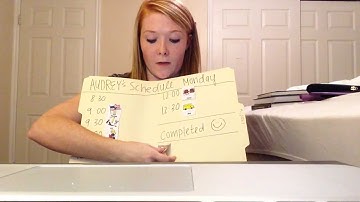 AUDREY's Schedule Monday
8:30
9:00
9:30
12:00
12:30
Completed